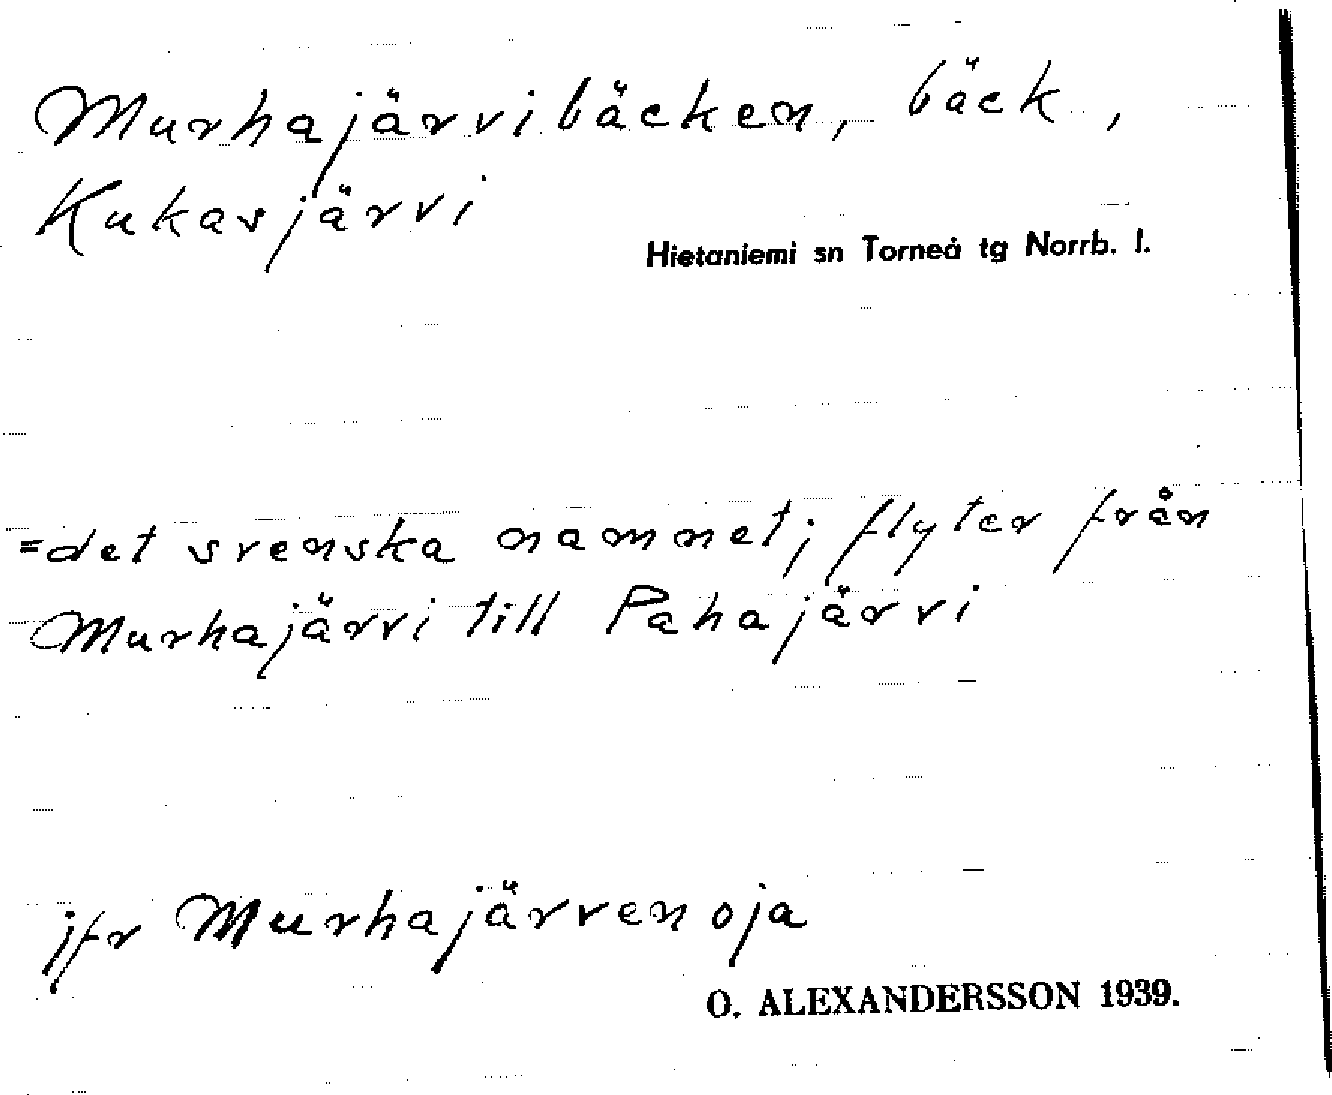 Murhajärvibäcken, bäck,
Kukasjärvi
Hietaniemi sn Torneå tg Norrb. l.
=det svenska namnet; flyter från
Murhajärvi till Pahajärvi
jfr Murhajärvenoja
O. ALEXANDERSSON 1939.